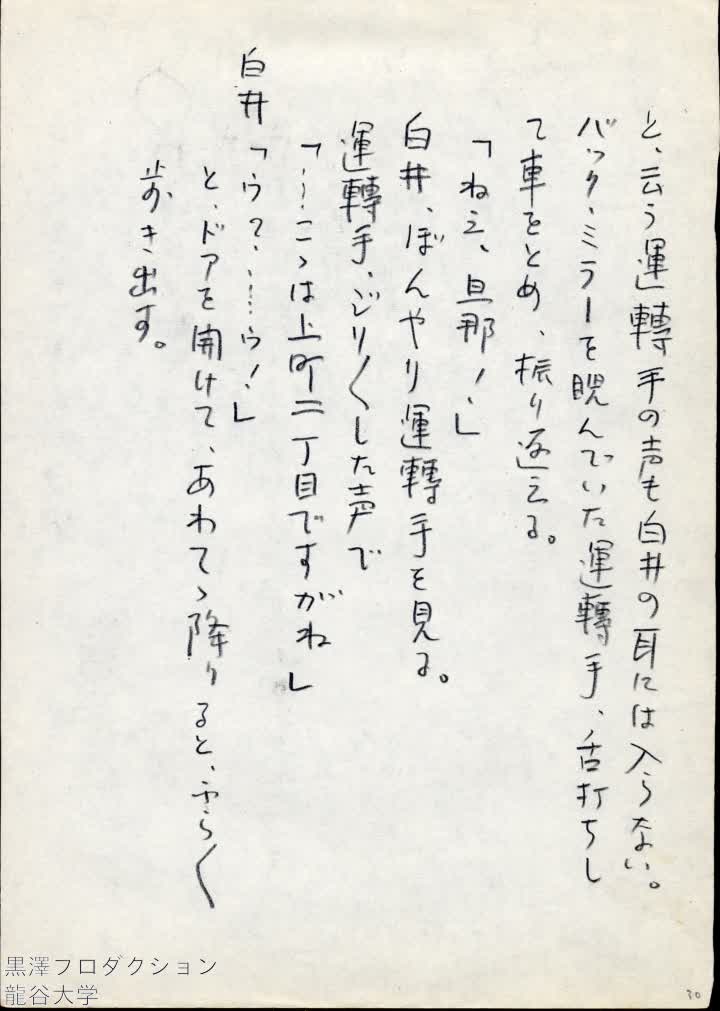 と、云う運轉手の声も白井の耳には入らない。
バック・ミラーを睨んでいた運轉手、舌打ちし
て車をとめ、振り返える。
「ねえ、旦那！」
白井、ぼんやり運轉手を見る。
運轉手、じり〱した声で
「……こゝは上町二丁目ですがね」
白井「ウ？……ウ！」
と、ドアを開けて、あわてゝ降りると、ふら〱
歩き出す。
黒澤プロダクション
龍谷大学
30